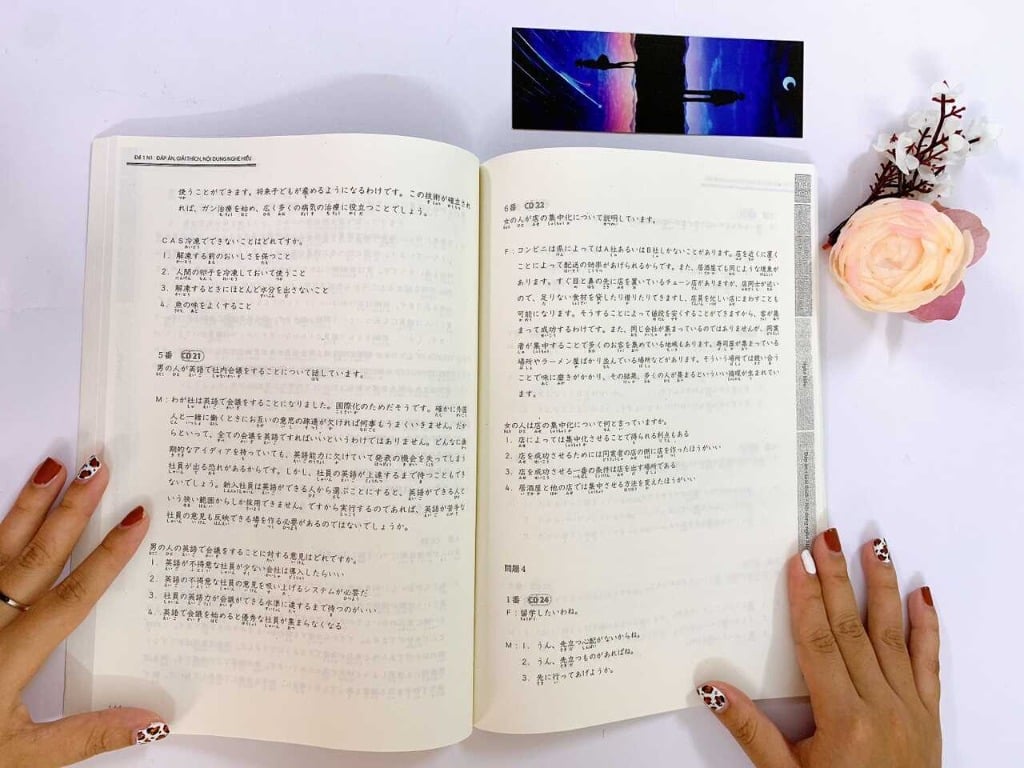 ĐỀ 1 N1 ĐÁP ÁN, GIẢI THÍCH, NỘI DUNG NGHE HIỂU
使うことができます。将来子どもが産めるようになるわけです。この技術が確立され
れば、ガン治療を始め、広く多くの病気の治療に役立つことでしょう。
CAS冷凍でできないことはどれですか。
1. 解凍する前のおいしさを保つこと
2. 人間の卵子を冷凍しておいて使うこと
3. 解凍するときにほとんど水分を出さないこと
4. 魚の味をよくすること
5番 CD 21
男の人が英語で社内会議をすることについて話しています。
M：わが社は英語で会議をすることになりました。国際化のためだそうです。確かに外国
人と一緒に働くときにお互いの意思の疎通が欠ければ何事もうまくいきません。だか
らといって、全ての会議を英語ですればいいというわけではありません。どんなに画
期的なアイディアを持っていても、英語能力に欠けていて発表の機会を失ってしまう
社員が出る恐れがあるからです。しかし、社員の英語が上達するまで待つこともでき
ないでしょう。新入社員は英語ができる人から選ぶことにすると、英語ができる人と
いう狭い範囲からしか採用できません。ですから実行するのであれば、英語が苦手な
社員の意見も反映できる場を作る必要があるのではないでしょうか。
男の人の英語で会議をすることに対する意見はどれですか。
1. 英語が不得意な社員が少ない会社は導入したらいい
2. 英語の不得意な社員の意見を吸い上げるシステムが必要だ
3. 社員の英語力が会議ができる水準に達するまで待つのがいい
4. 英語で会議を始めると優秀な社員が集まらなくなる
6番 CD 22
女の人が店の集中化について説明しています。
F：コンビニは県によってはA社あるいはB社しかないことがあります。店を近くに置く
ことによって配送の効果があげられるからです。また、居酒屋でも同じような現象が
あります。すぐ目と鼻の先に店を置いているチェーン店がありますが、店同士が近い
ので、足りない食材を貸したり借りたりできますし、店員を忙しい店にまわすことも
可能になります。そうすることによって値段を安くすることができますから、客が集
まって成功するわけです。また、同じ会社が集まっているのではありませんが、同業
者が集中することで多くのお客を集めている地域もあります。寿司屋が集まっている
場所やラーメン屋ばかり並んでいる場所などがあります。そういう場所では競い合う
ことで味に磨きがかかり、その結果、多くの人が集まるといういい循環が生まれてい
ます。
女の人は店の集中化について何と言っていますか。
1. 店によっては集中化させることで得られる利点もある
2. 店を成功させるためには同業者の店の側に店を作ったほうがいい
3. 店を成功させる一番の条件は店を出す場所である
4. 居酒屋と他の店では集中させる方法を変えたほうがいい
問題4
1番 CD 24
F：留学したいわね。
M：1. うん、先立つ心配がないからね。
2. うん、先立つものがあればね。
3. 先に行ってあげようか。